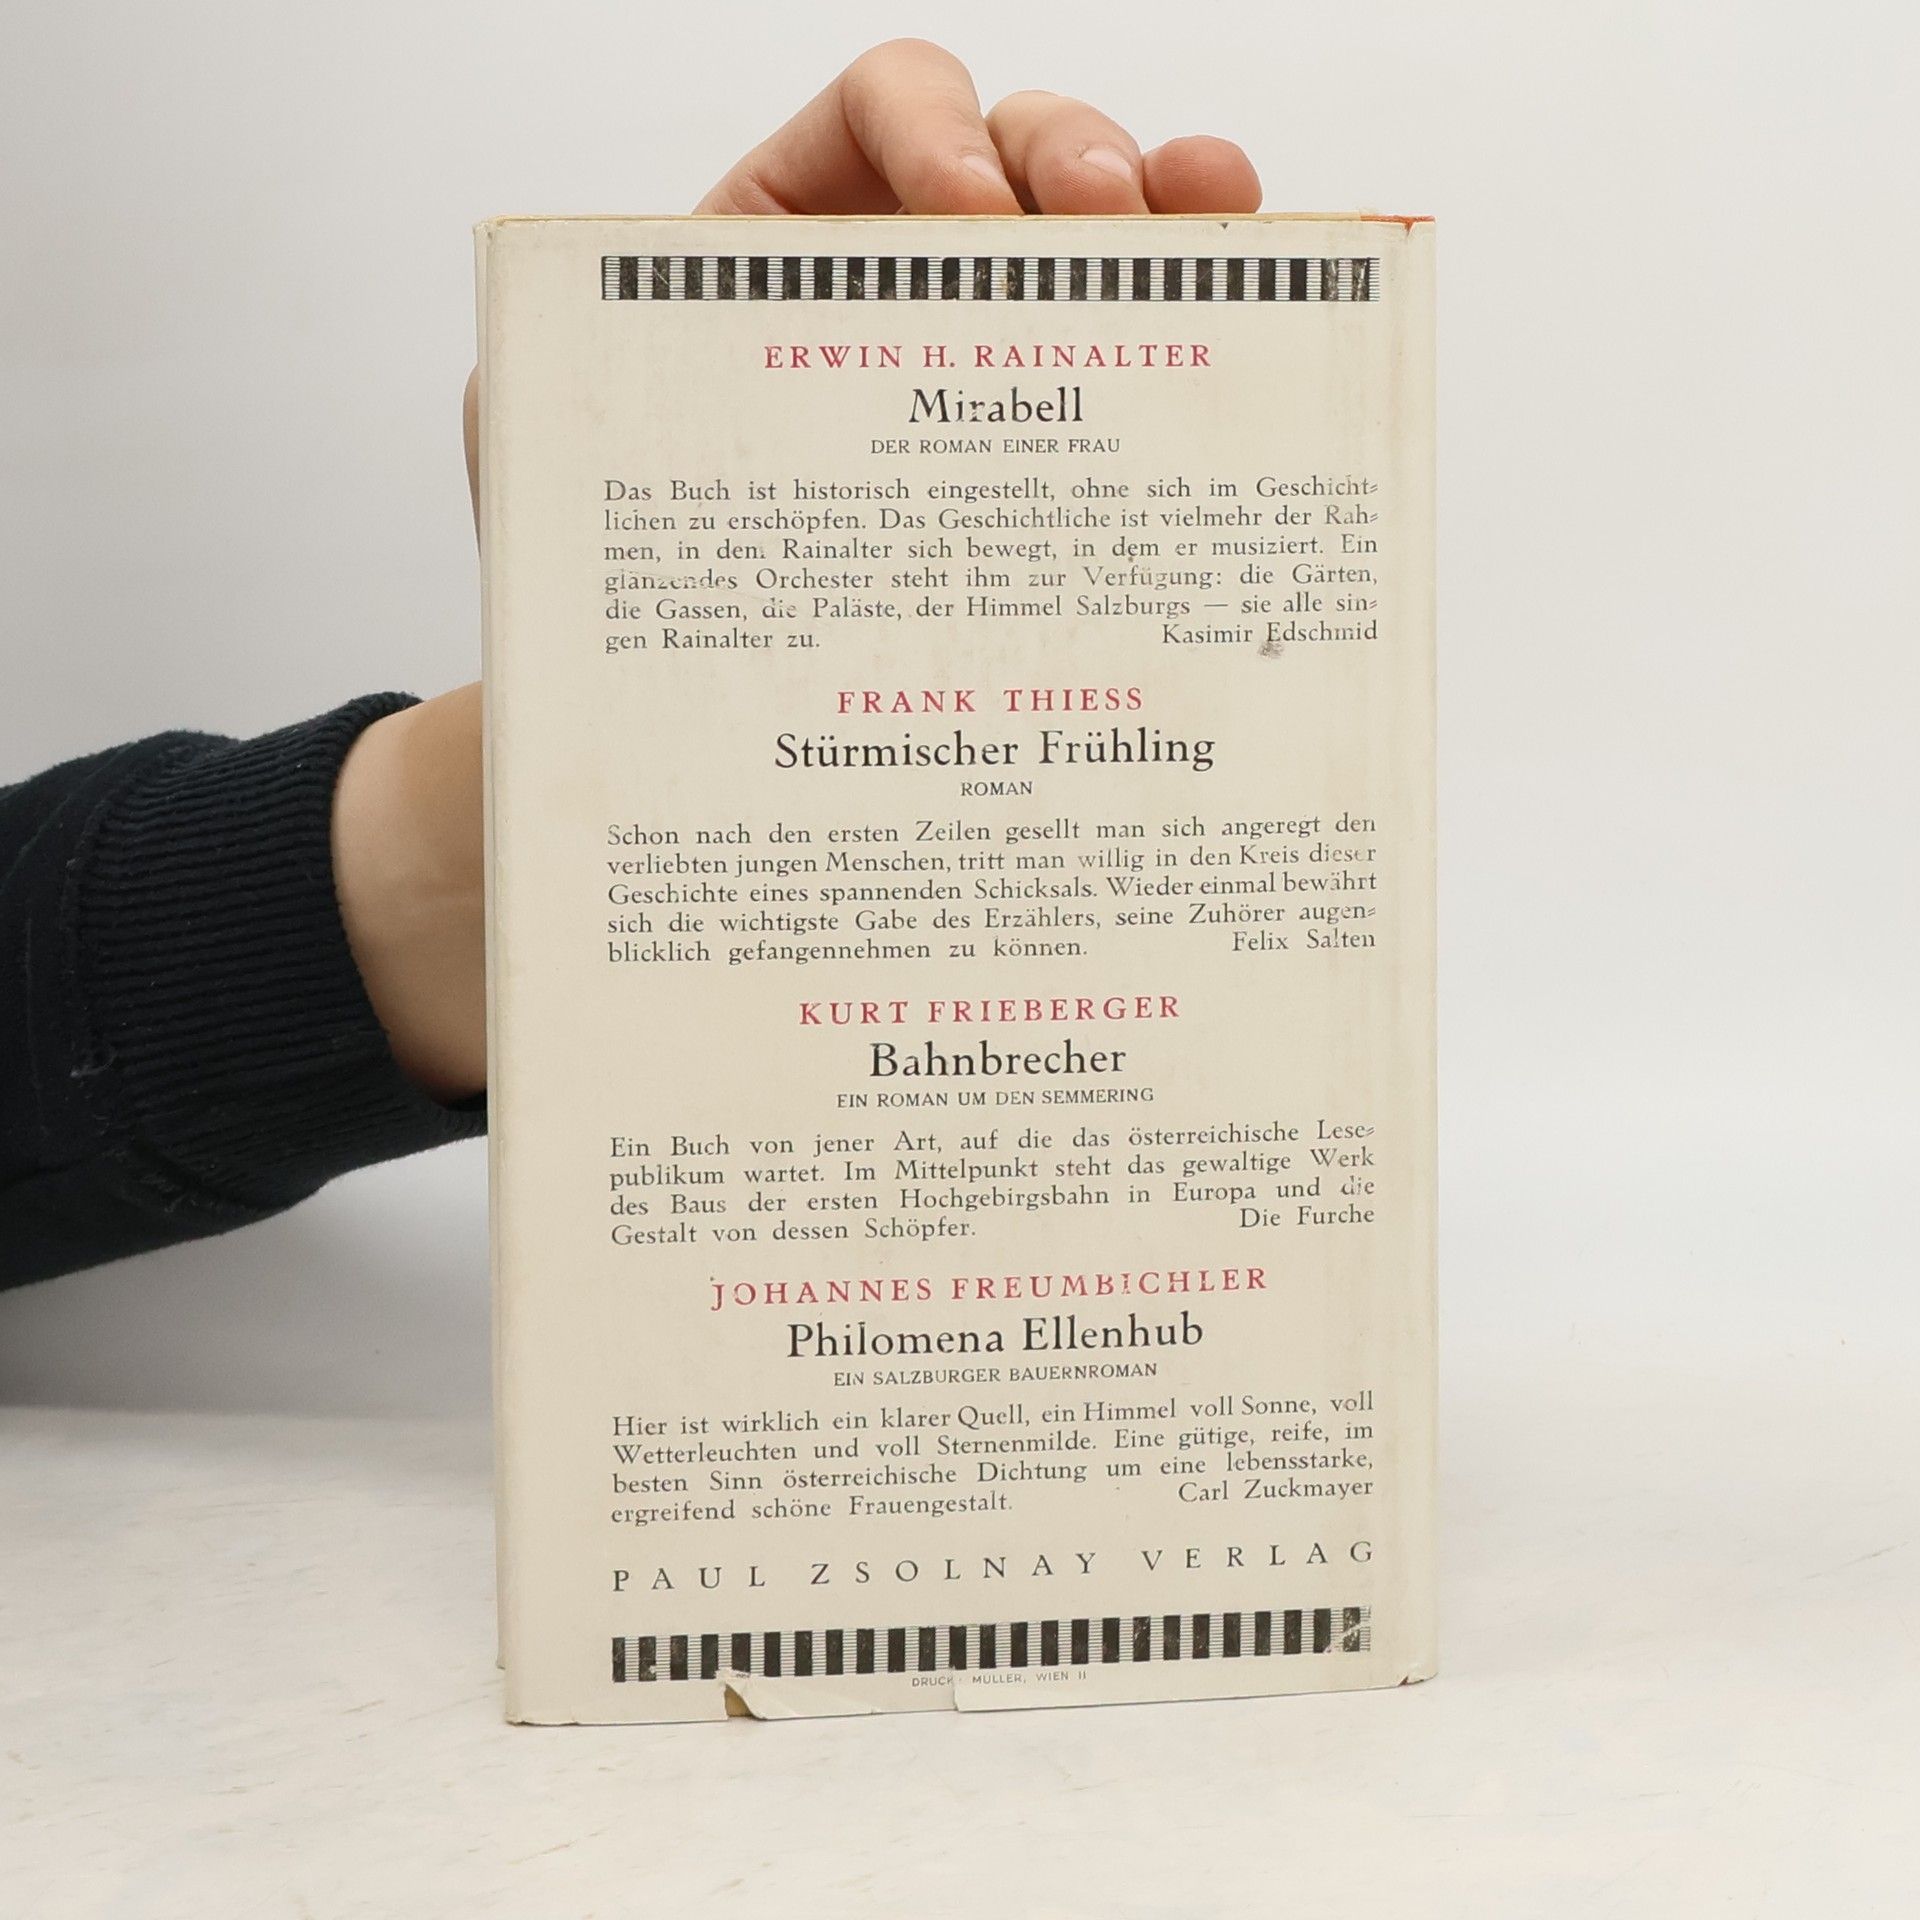 ERWIN H. RAINALTER
Mirabell
DER ROMAN EINER FRAU
Das Buch ist historisch eingestellt, ohne sich im Geschicht-
lichen zu erschöpfen. Das Geschichtliche ist vielmehr der Rah-
men, in dem Rainalter sich bewegt, in dem er musiziert. Ein
glänzendes Orchester steht ihm zur Verfügung: die Gärten,
die Gassen, die Paläste, der Himmel Salzburgs — sie alle sin-
gen Rainalter zu. Kasimir Edschmid
FRANK THIESS
Stürmischer Frühling
ROMAN
Schon nach den ersten Zeilen gesellt man sich angeregt den
verliebten jungen Menschen, tritt man willig in den Kreis dieser
Geschichte eines spannenden Schicksals. Wieder einmal bewährt
sich die wichtigste Gabe des Erzählers, seine Zuhörer augen-
blicklich gefangennehmen zu können. Felix Salten
KURT FRIEBERGER
Bahnbrecher
EIN ROMAN UM DEN SEMMERING
Ein Buch von jener Art, auf die das österreichische Lese-
publikum wartet. Im Mittelpunkt steht das gewaltige Werk
des Baus der ersten Hochgebirgsbahn in Europa und die
Gestalt von dessen Schöpfer. Die Furche
JOHANNES FREUMBICHLER
Philomena Ellenhub
EIN SALZBURGER BAUERNROMAN
Hier ist wirklich ein klarer Quell, ein Himmel voll Sonne, voll
Wetterleuchten und voll Sternenmilde. Eine gütige, reife, im
besten Sinn österreichische Dichtung um eine lebensstarke,
ergreifend schöne Frauengestalt. Carl Zuckmayer
PAUL ZSOLNAY VERLAG
DRUCK: MÜLLER, WIEN II